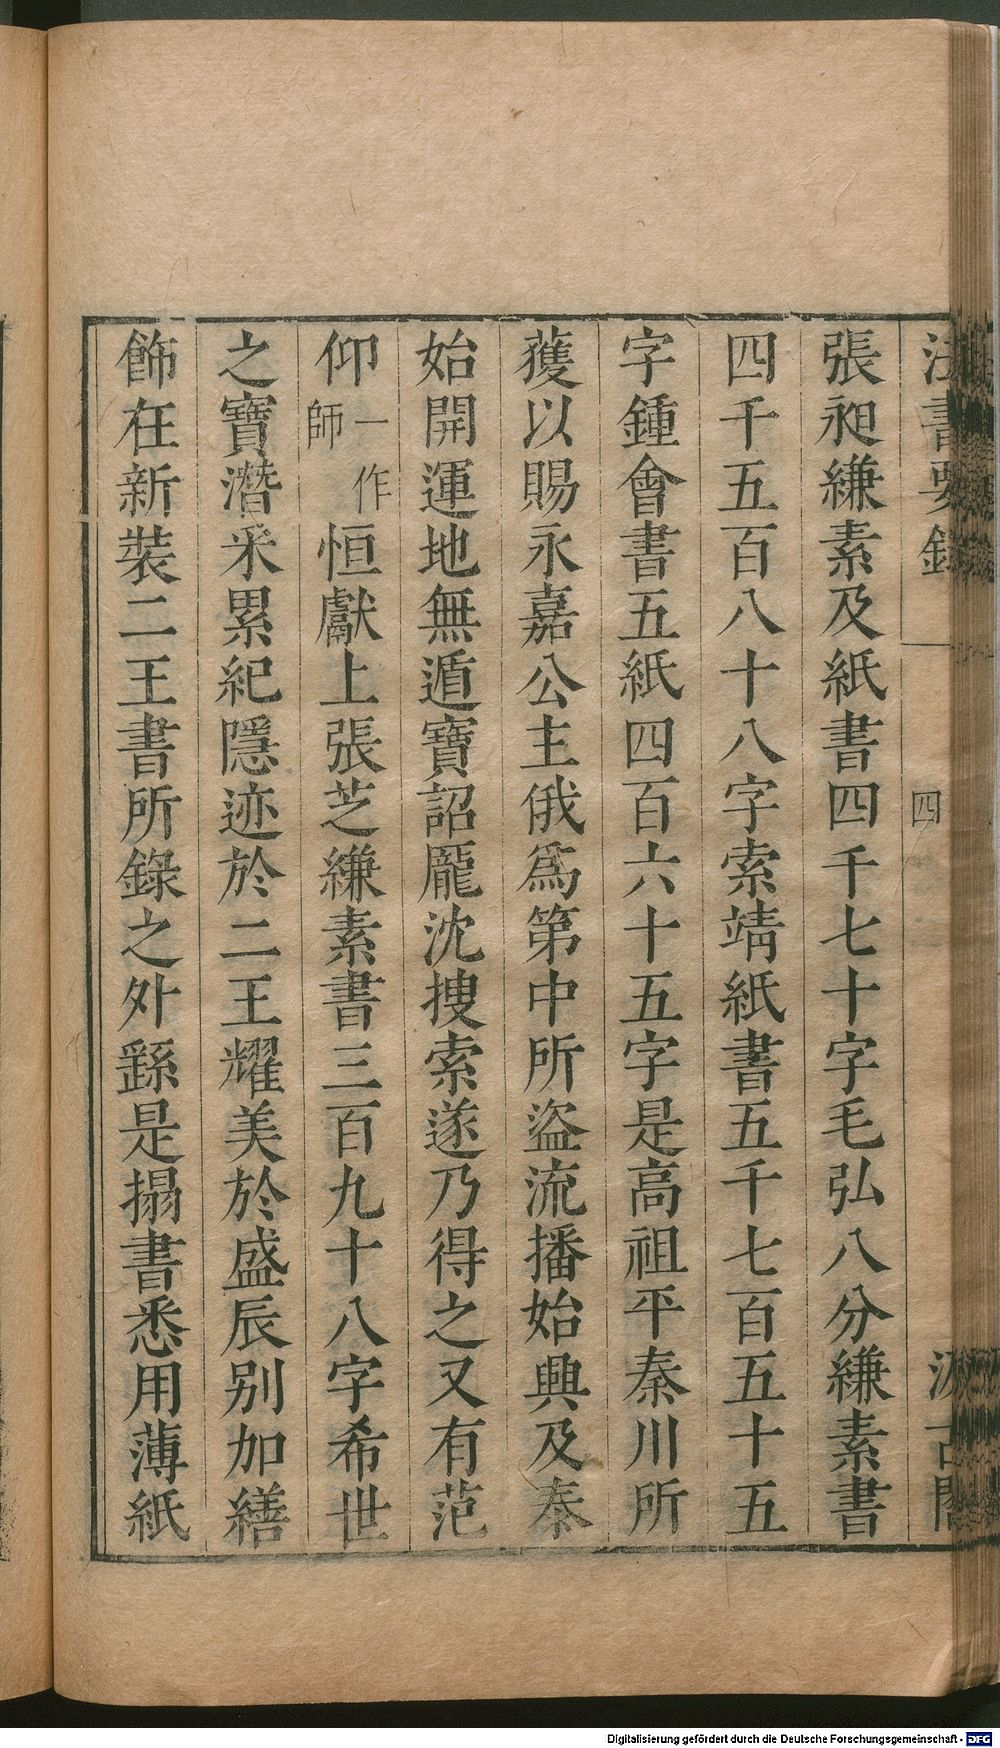 法書要錄
四
汲古閣
張昶縑素及紙書四千七十字毛弘八分縑素書
四千五百八十八字索靖紙書五千七百五十五
字鍾會書五紙四百六十五字是高祖平秦川所
獲以賜永嘉公主俄爲第中所盜流播始興及泰
始開運地無遁寶詔龐沈搜索遂乃得之又有范
仰一作師恒獻上張芝縑素書三百九十八字希世
之寶潛采累紀隱迹於二王耀美於盛辰别加繕
飾在新裝二王書所錄之外繇是搨書悉用薄紙
Digitalisierung gefördert durch die Deutsche Forschungsgemeinschaft - DFG